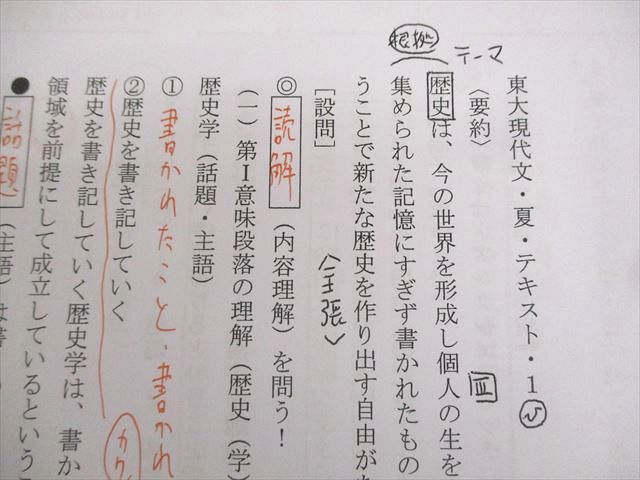 東大現代文・夏・テキスト・1
〈要約〉
根拠
テーマ
歴史は、今の世界を形成し個人の生を
Ⅲ
集められた記憶にすぎず書かれたもの
うことで新たな歴史を作り出す自由が
〈主張〉
[設問]
◎読解(内容理解)を問う!
(一)第Ⅰ意味段落の理解(歴史(学)
歴史学(話題・主語)
①書かれたこと、書かれ
②歴史を書き記していく
歴史を書き記していく歴史学は、書か
領域を前提にして成立しているという
●話題(主語)は書